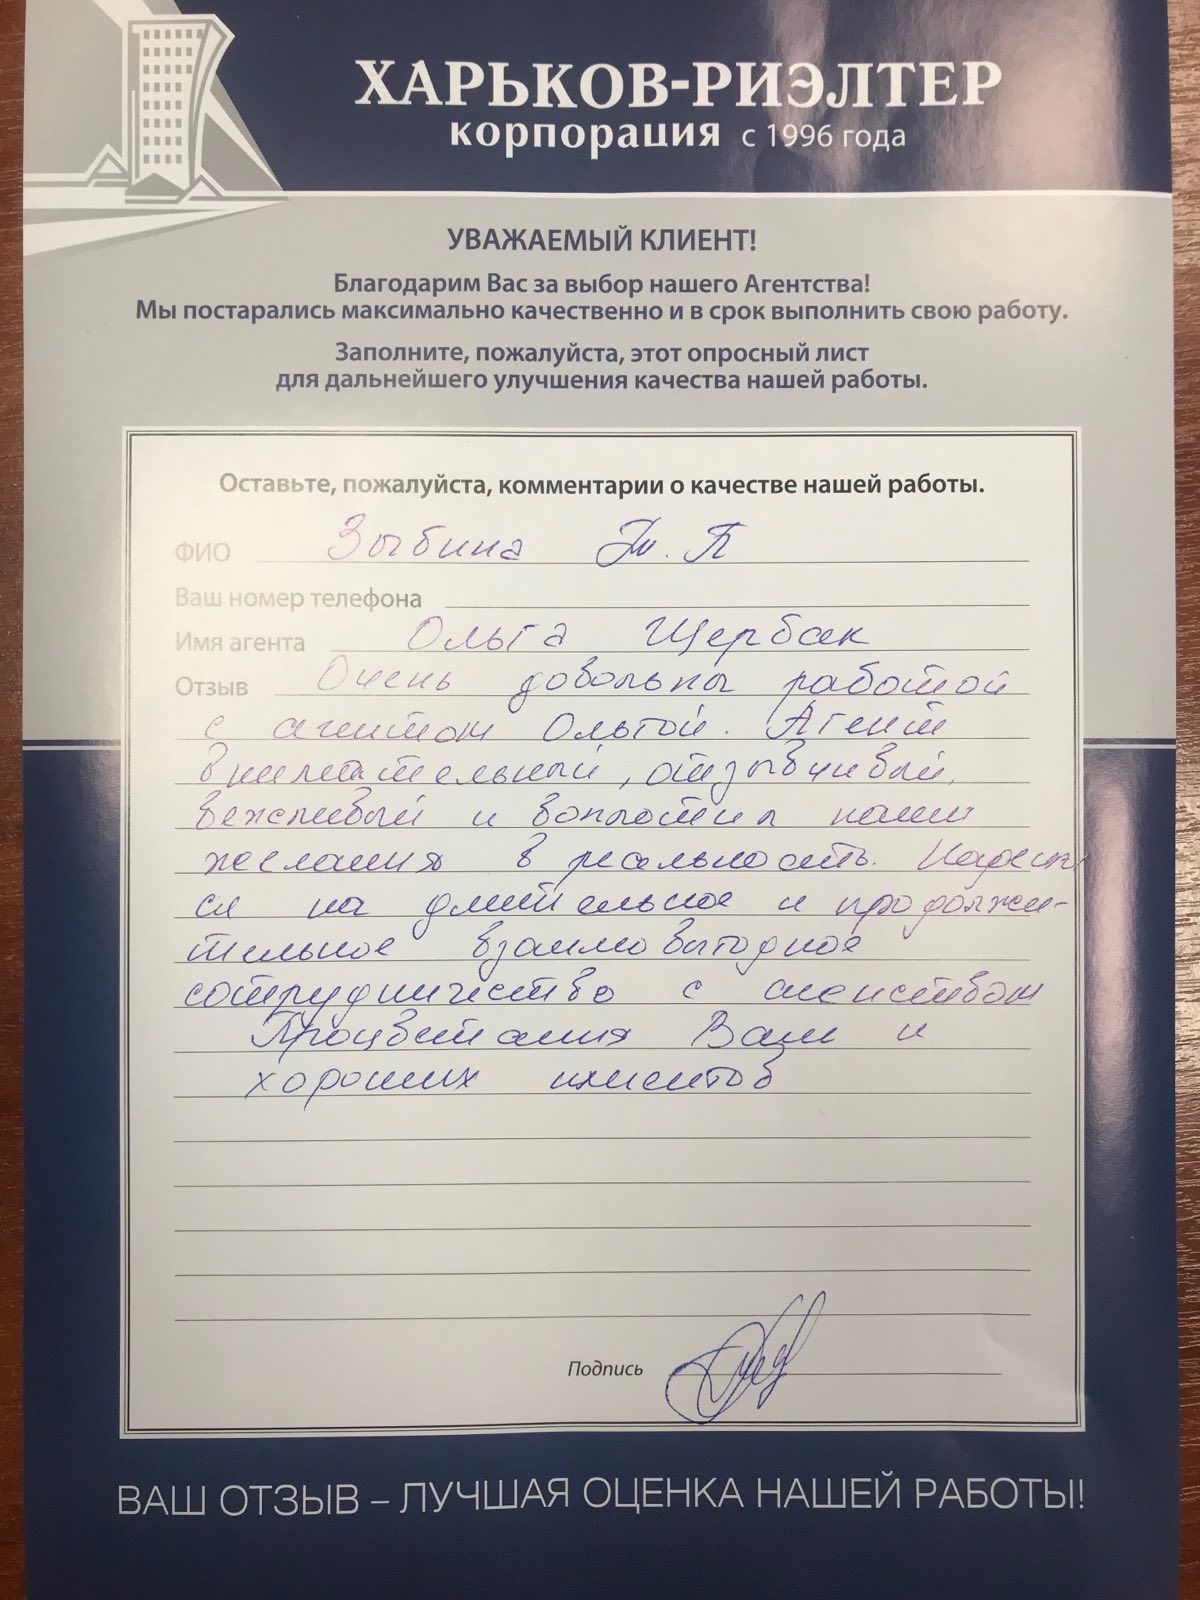 ХАРЬКОВ-РИЭЛТЕР
корпорация с 1996 года
УВАЖАЕМЫЙ КЛИЕНТ!
Благодарим Вас за выбор нашего Агентства!
Мы постарались максимально качественно и в срок выполнить свою работу.
Заполните, пожалуйста, этот опросный лист
для дальнейшего улучшения качества нашей работы.
Оставьте, пожалуйста, комментарии о качестве нашей работы.
ФИО Зыбина П
Ваш номер телефона
Имя агента Ольга Щербак
Отзыв Очень довольны работой
с агентом Ольгой. Агент
внимательный, отзывчивый,
вежливый и воплотил наши
желания в реальность. Надеем
ся на длительное и продолжи-
тельное взаимовыгодное
сотрудничество с агенством
Процветания Вам и
хороших клиентов
Подпись
ВАШ ОТЗЫВ – ЛУЧШАЯ ОЦЕНКА НАШЕЙ РАБОТЫ!